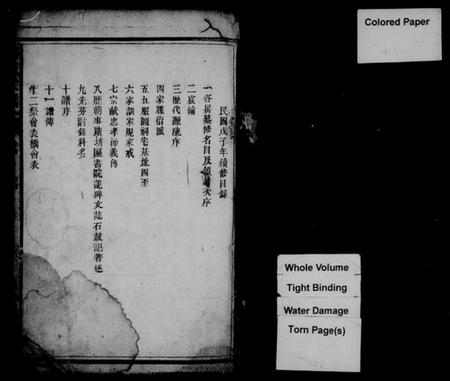 民國戊子年續修目錄
一各屆纂修名目及領譜次序
二宸綸
三歷代源流序
四家課宿派
五五服圖祠宅基址四至
六家訓家規家戒
七宗獻忠孝節義傳
八歷朝事蹟坊區書院記碑文誌石鼓記著述
九先芬附錄科名
十譜序
十一譜傳
十二祭會表橋會表
Colored Paper
Whole Volume
Tight Binding
Water Damage
Torn Page(s)